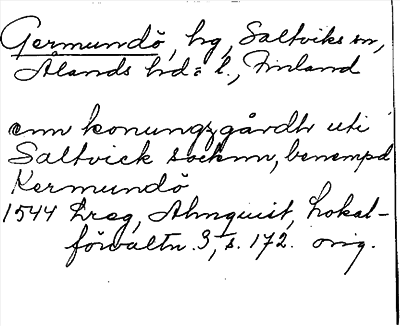 Germundö, hg, Saltviks sn,
Ålands hd: l., Finland
enn konungzgårdh uti
Saltvick socknn, benempd
Kermundö
1544 Dreg, Almquist, Lokal-
förvaltn. 3, s. 172. orig.